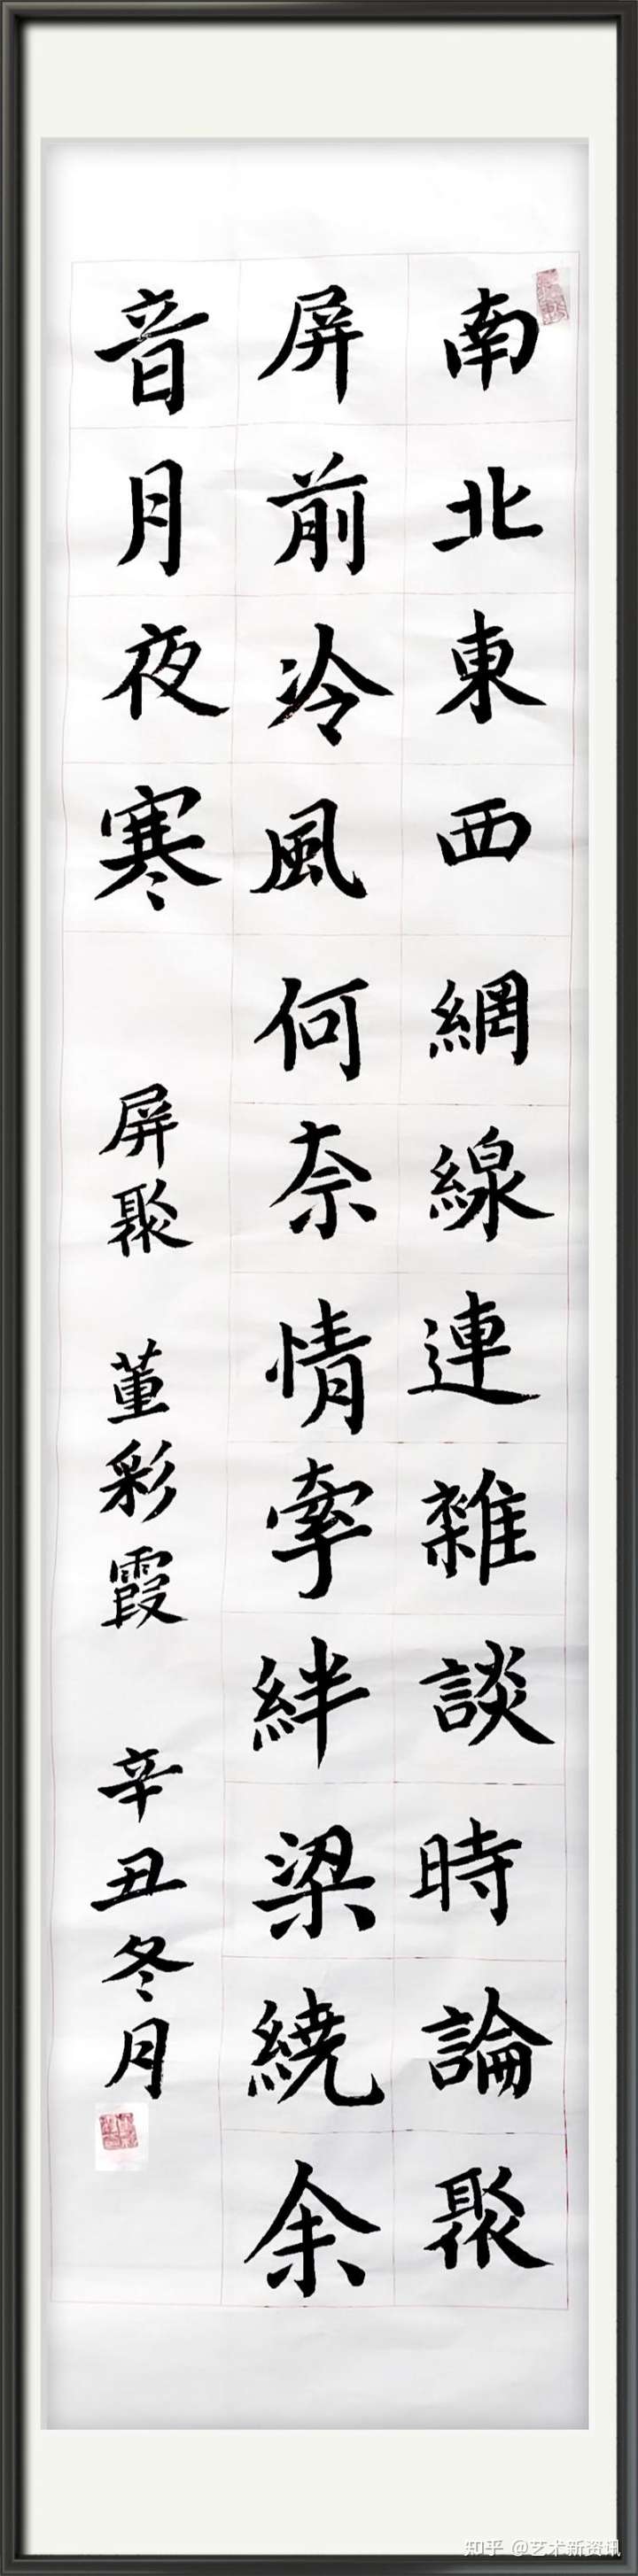 南北東西網線連雜談時論聚
屏前冷風何奈情牽絆梁繞余
音月夜寒
屏聚 董彩霞 辛丑冬月
知乎 @艺术新资讯